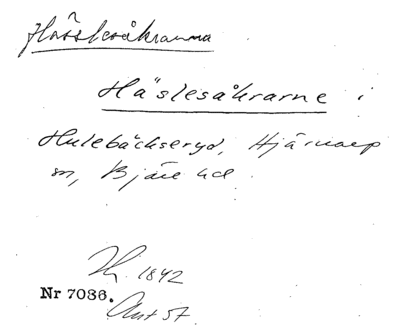 Hässlesåkrarna
Häslesåkrarne i
Hulebäckseryd, Hjärnarp
sn, Bjäre hd
1842
Nr 7036.
Ant 57